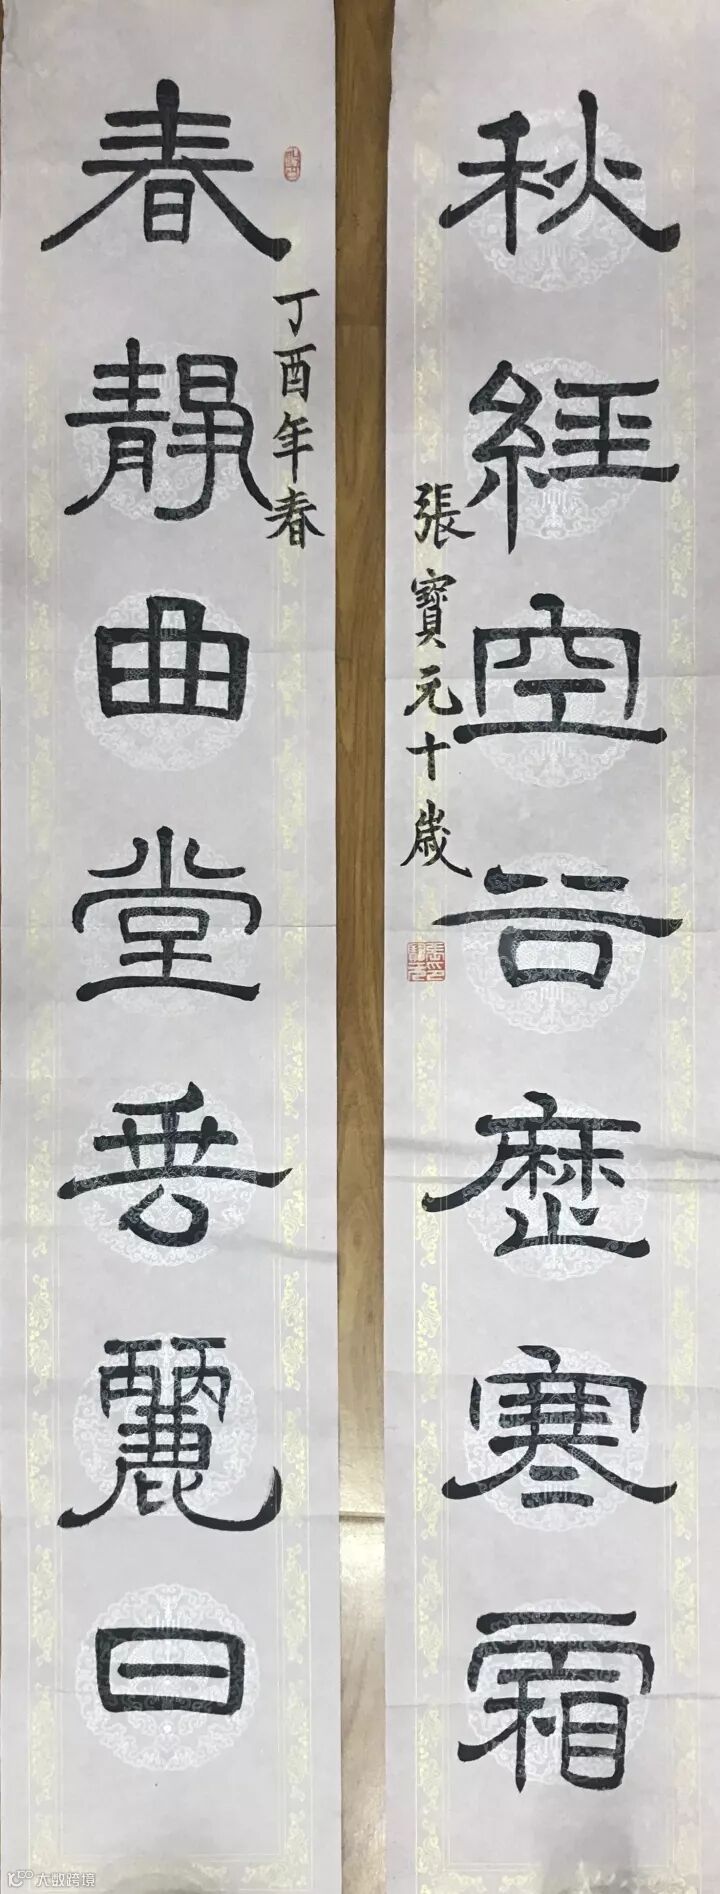 秋經空谷歷寒霜
張寶元十歲
丁酉年春
春靜曲堂垂麗日
大数跨境